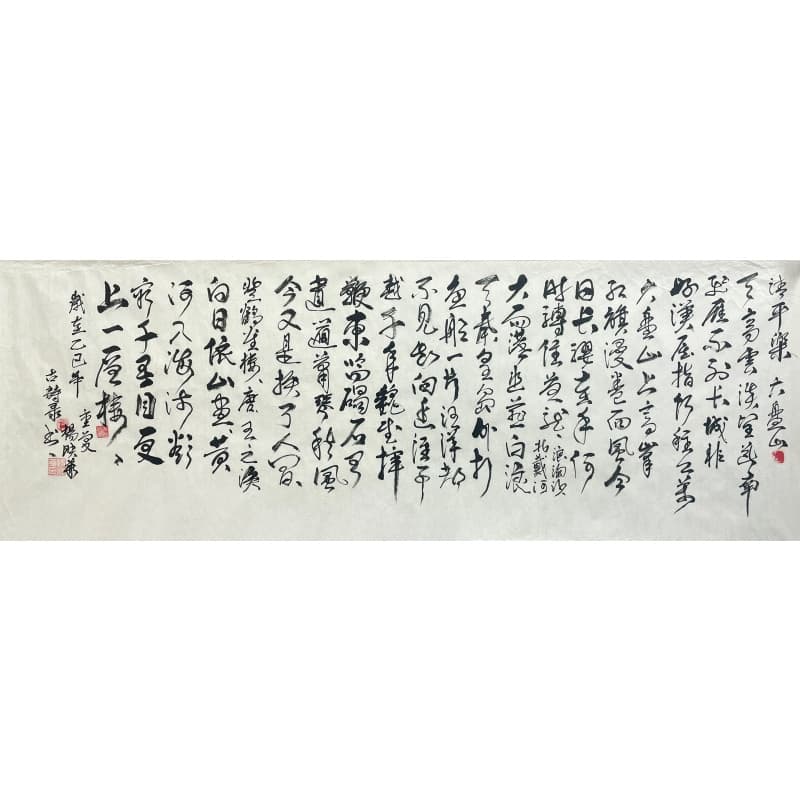 清平樂 六盘山
天高雲淡望断南
飛雁不到长城非
好漢屈指行程二萬
六盘山上高峯
红旗漫卷西風今
日长纓在手何
时縛住蒼龙
浪淘沙
北戴河
大雨落幽燕白浪
天秦皇島外打
鱼船一片汪洋都
不见知向
越千年魏武揮
鞭東临碣石有
遺篇蕭瑟秋風
今又是换了人间
登鹳雀樓 唐 王之涣
白日依山尽黄
河入海流欲
穷千里目更
上一层樓
歲在乙巳年
重慶
楊華
古詩录 书